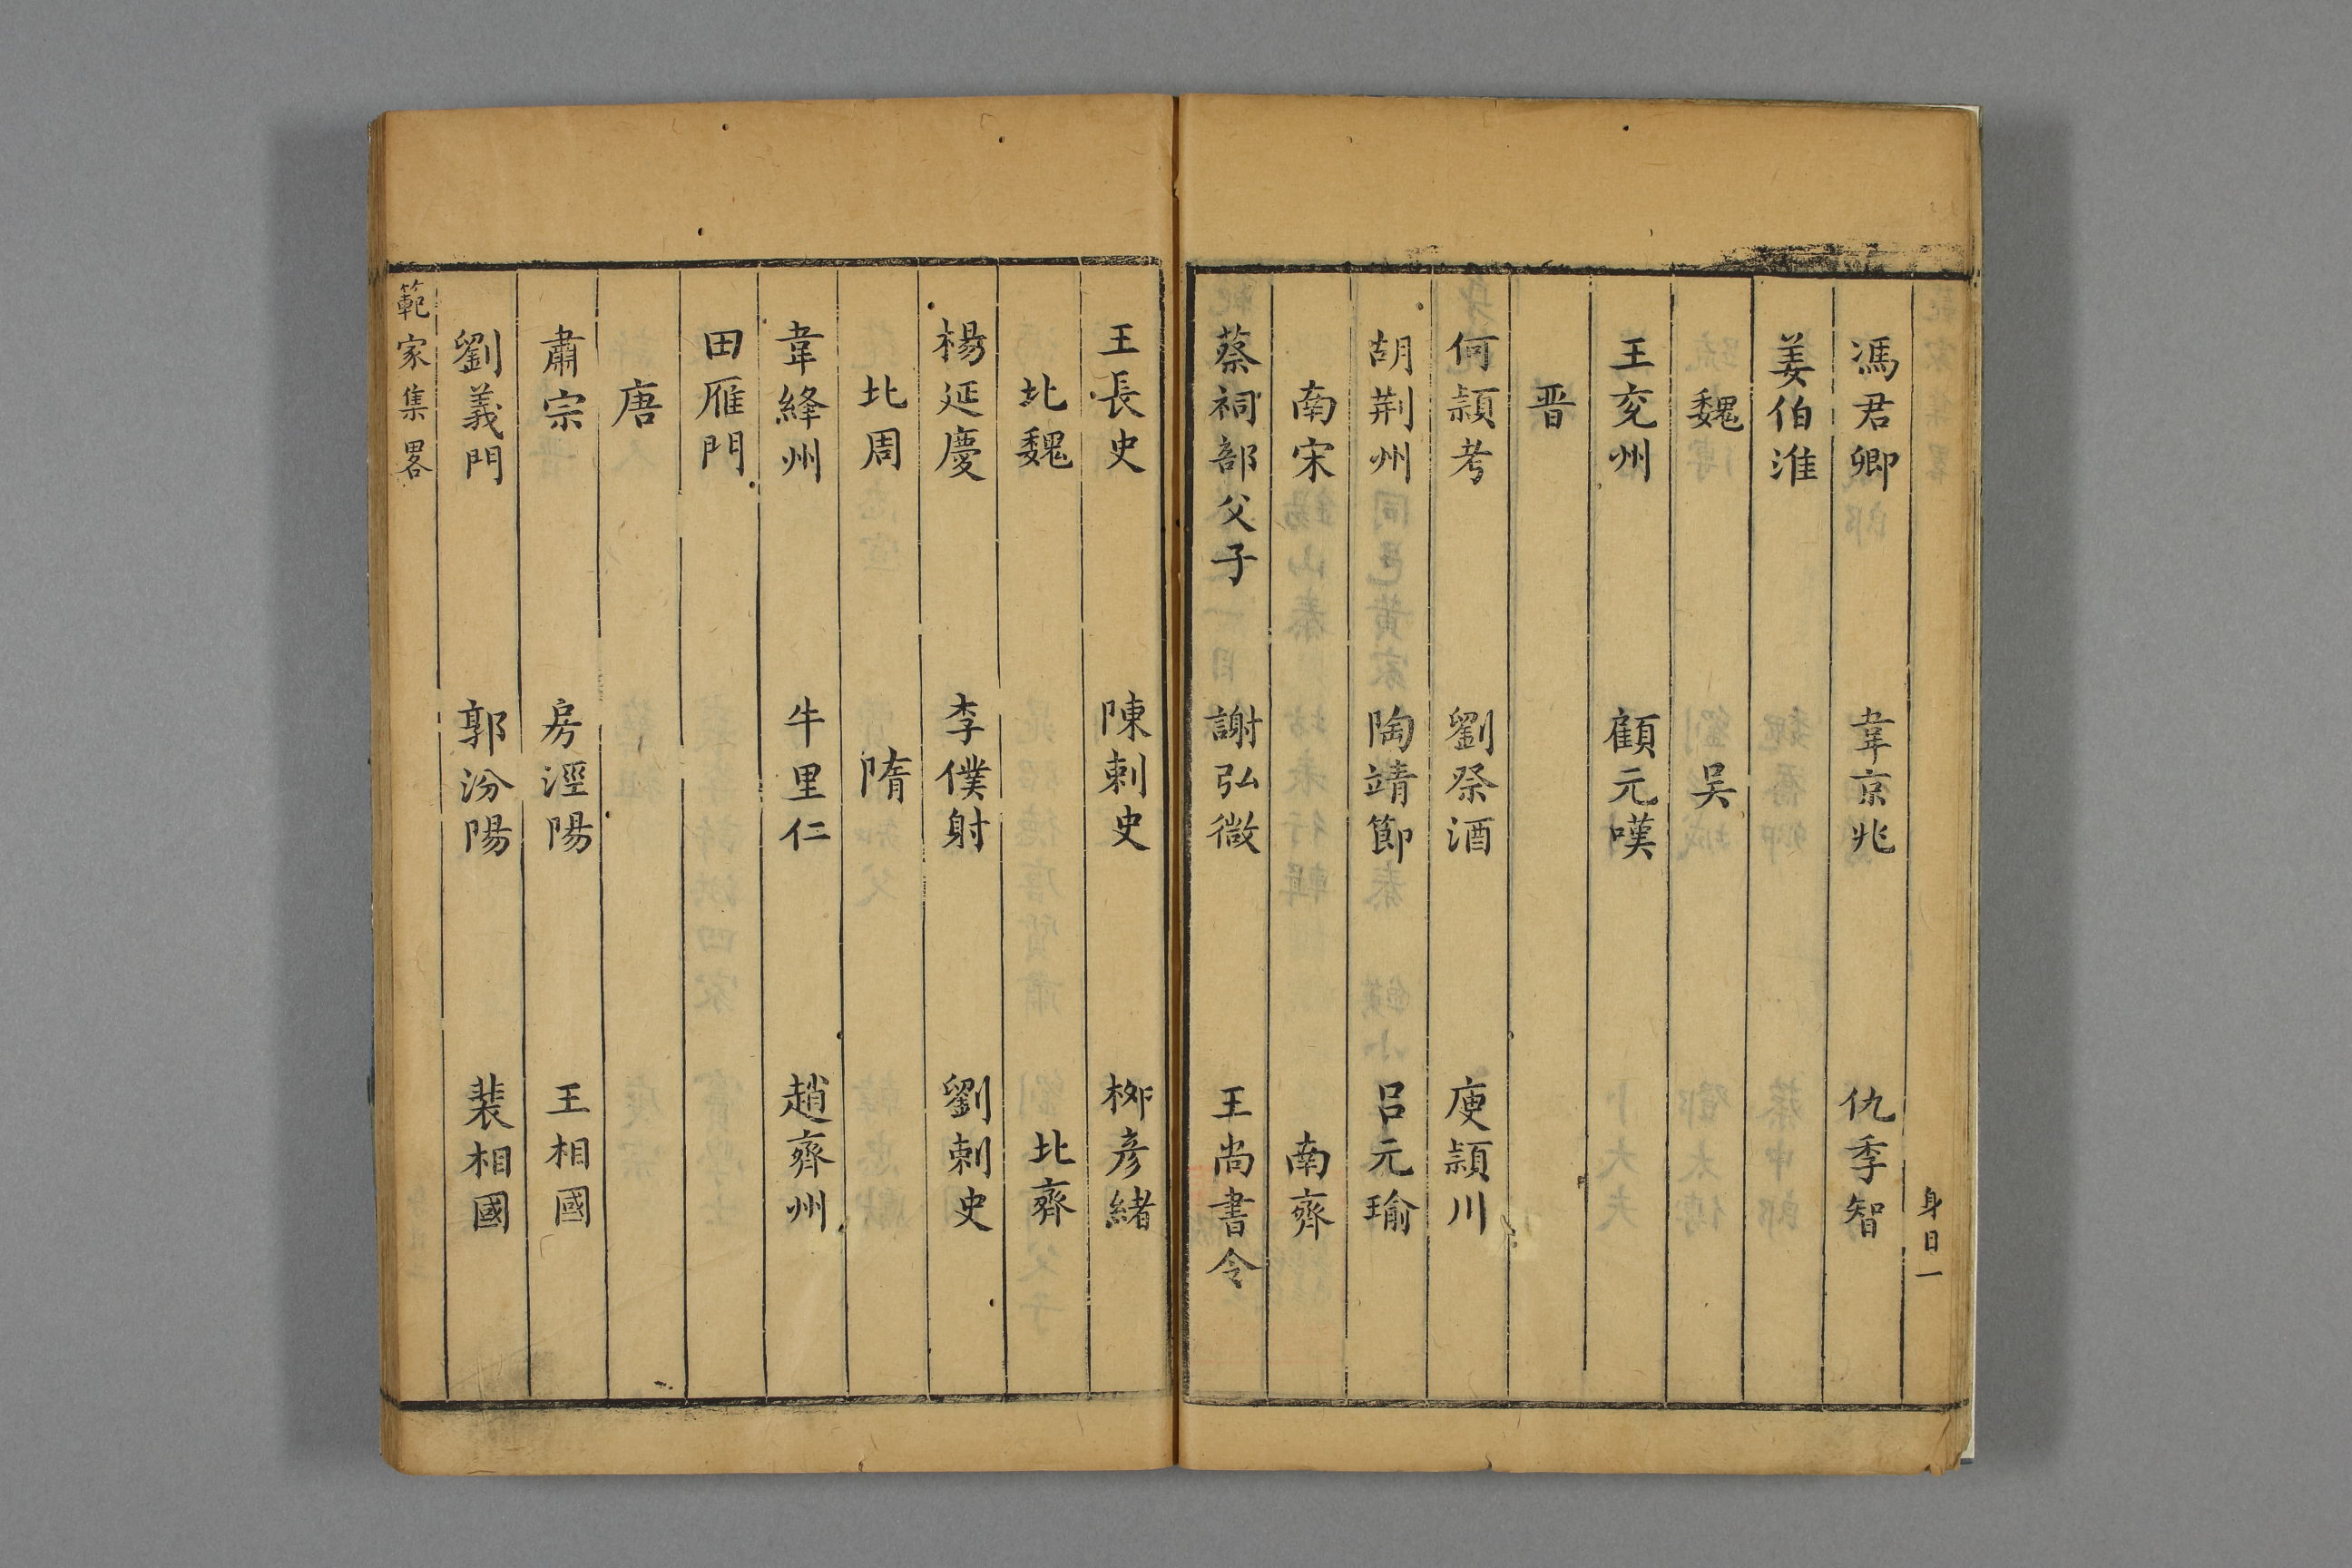 身目一
馮君卿 韋京兆 仇季智
姜伯淮
魏 吴
王兗州 顧元嘆
晋
何頴考 劉祭酒 庾頴川
胡荆州 陶靖節 吕元瑜
南宋 南齊
蔡祠部父子 謝弘微 王尚書令
王長史 陳刺史 栁彦緒
北魏 北齊
楊延慶 李僕射 劉刺史
北周 隋
韋絳州 牛里仁 趙齊州
田雁門
唐
肅宗 房涇陽 王相國
劉義門 郭汾陽 裴相國
範家集畧